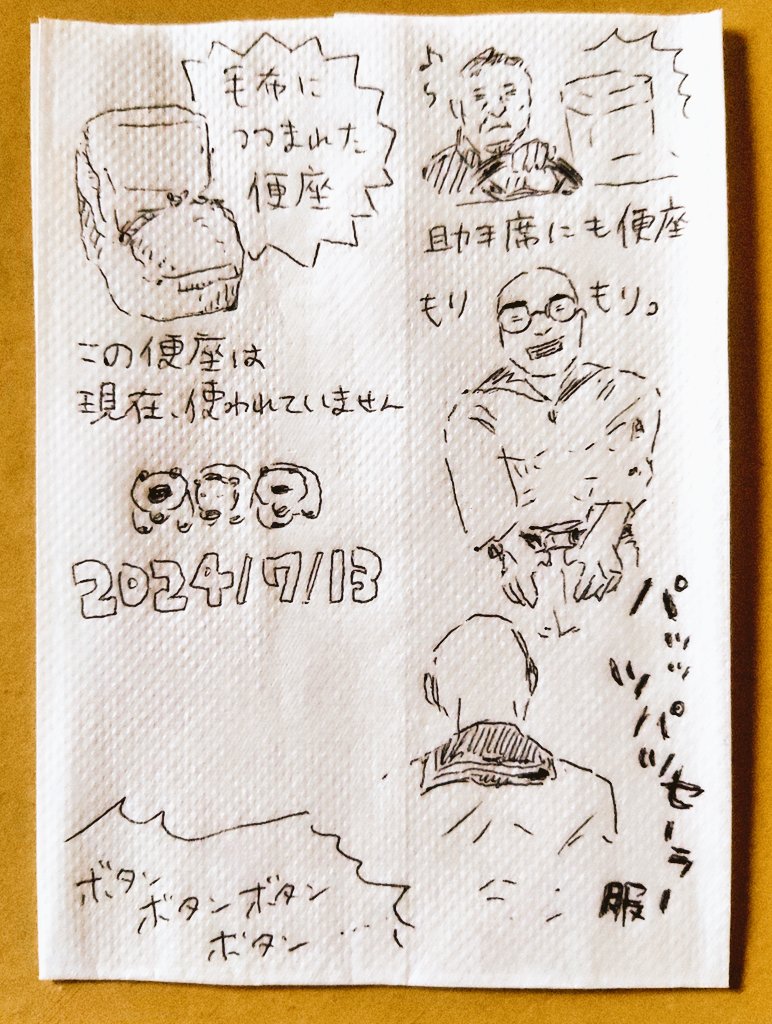 毛布に
つつまれた
便座
この便座は
現在、使われていません
2024/7/13
助手席にも便座
もり
もり。
パッツッ
ツパッツ
セーラー
服
ボタン
ボタンボタン
ボタン……